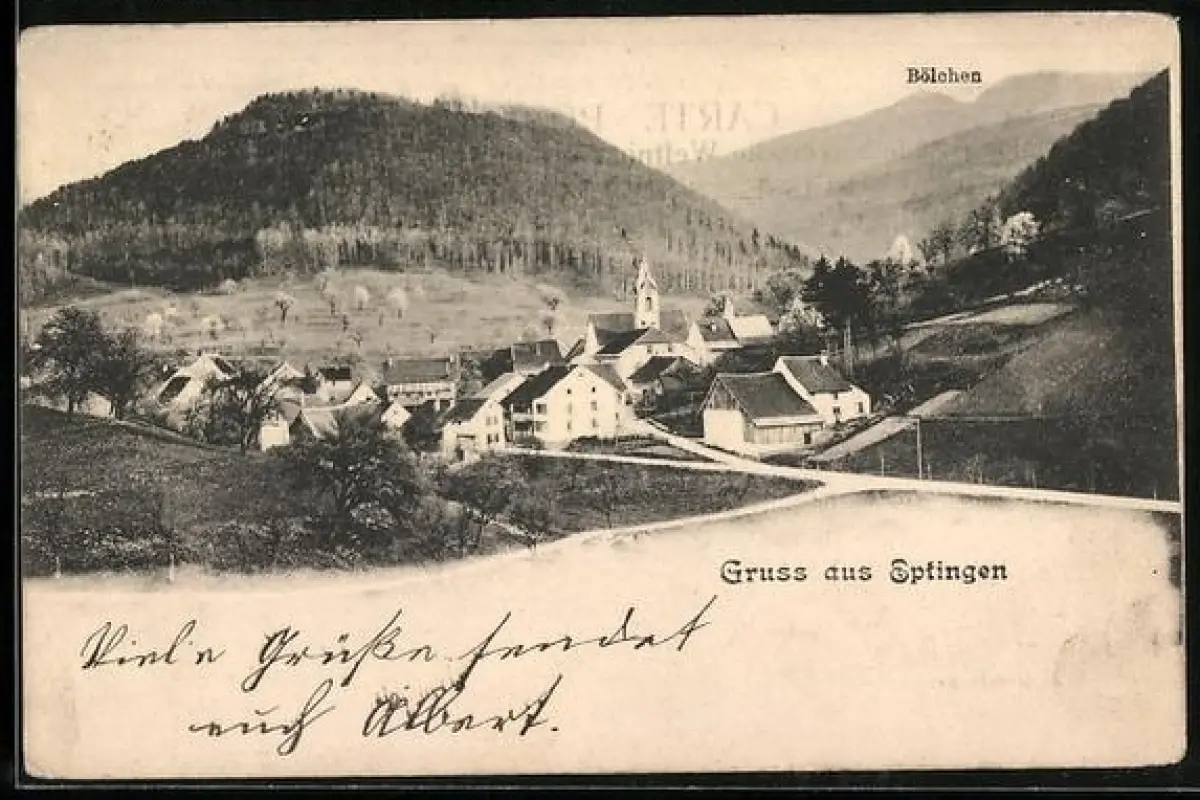 Bölchen
Gruss aus Eptingen
Viele Grüße sendet
euch Albert.